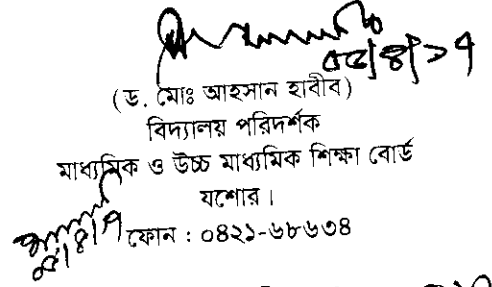 ০৫/৪/১৭
(ড. মোঃ আহসান হাবীব)
বিদ্যালয় পরিদর্শক
মাধ্যমিক ও উচ্চ মাধ্যমিক শিক্ষা বোর্ড
যশোর।
ফোন : ০৪২১-৬৮৬৩৪